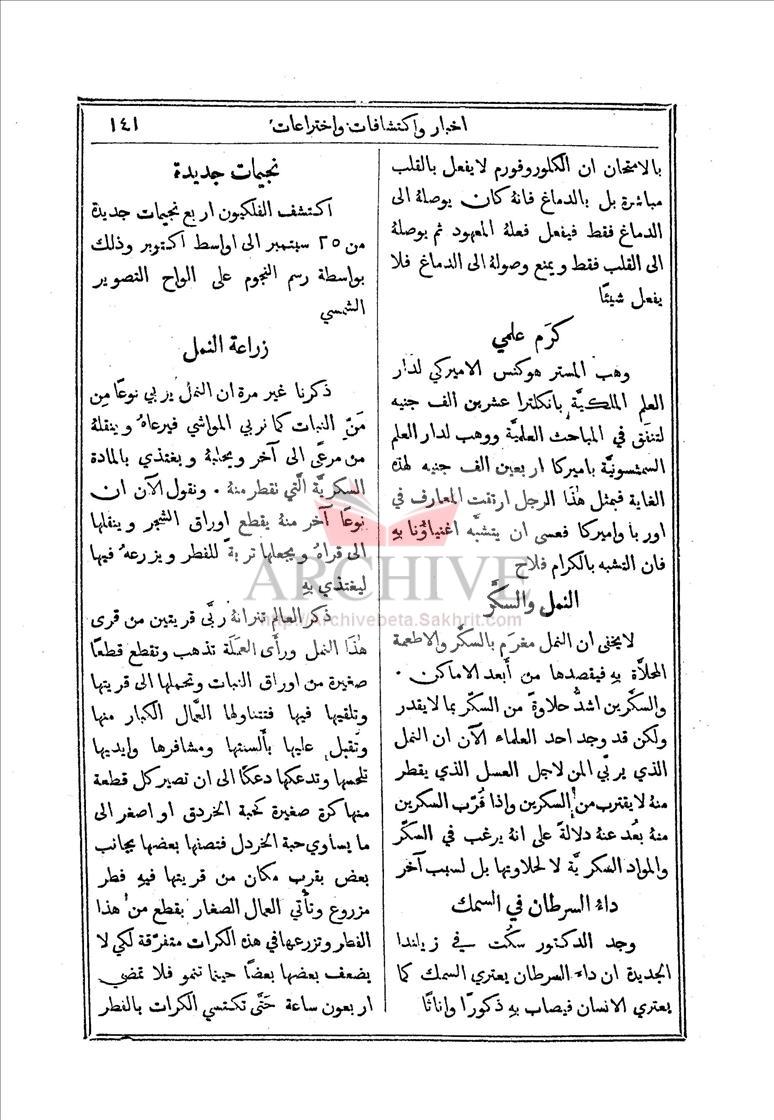 اخبار واكتشافات واختراعات
١٤١
بالامتحان ان الكلوروفورم لايفعل بالقلب
مباشرة بل بالدماغ فانهُ كان يوصلهُ الى
الدماغ فقط فيفعل فعلهُ المعهود ثم يوصلهُ
الى القلب فقط ويمنع وصولهُ الى الدماغ فلا
يفعل شيئًا
كرَم علمي
وهب المستر هوكنس الاميركي لدار
العلم الملكيَّة بانكلترا عشرين الف جنيه
لتنفق في المباحث العلميَّة ووهب لدار العلم
السمثسونيَّة باميركا اربعين الف جنيه لهذه
الغاية فبمثل هٰذا الرجل ارتقت المعارف في
اوربا واميركا فعسى ان يتشبَّه اغنياؤنا بهِ
فان التشبه بالكرام فلاح
النمل والسكَّر
لايخفى ان النمل مغرَم بالسكَّر والاطعمة
المحلاَّة بهِ فيقصدها من أبعد الاماكن .
والسكَّرين اشدُّ حلاوةً من السكَّر بما لايقدر
ولكن قد وجد احد العلماء الآن ان النمل
الذي يربّي المن لاجل العسل الذي يقطر
منهُ لايقترب من السكرين واذا قُرّب السكرين
منهُ بعُد عنهُ دلالةً على انهُ يرغب في السكَّر
والمواد السكريَّة لا لحلاوتها بل لسبب آخر
داء السرطان في السمك
وجد الدكتور سكُت في زيلندا
الجديدة ان داء السرطان يعتري السمك كما
يعتري الانسان فيصاب بهِ ذكورًا واناثًا
نجيمات جديدة
اكتشف الفلكيون اربع نجيمات جديدة
من ٢٥ سبتمبر الى اواسط اكتوبر وذلك
بواسطة رسم النجوم على الواح التصوير
الشمسي
زراعة النمل
ذكرنا غير مرة ان النمل يربي نوعًا مِن
مَنّ النبات كما نربي المواشي فيرعاهُ وينقلهُ
من مرعًى الى آخر ويحلبهُ ويغتذي بالمادة
السكريَّة الَّتي نقطر منهُ . ونقول الآن ان
نوعًا آخر منهُ يقطع اوراق الشجر وينقلها
الى قراهُ ويجعلها تربةً للفطر ويزرعهُ فيها
ليغتذي بهِ
ذكر العالم تنرانهُ ربَّى قريتين من قرى
هٰذا النمل ورأى العمَلة تذهب وتقطع قطعًا
صغيرة من اوراق النبات وتحملها الى قريتها
وتلقيها فيها فتتناولها العَّمال الكبار منها
وتُقبل عليها بألسنتها ومشافرها وايديها
تلحسها وتدعكها دعكًا الى ان تصير كل قطعة
منها كرة صغيرة كحبة الخردق او اصغر الى
ما يساوي حبة الخردل فتصفها بعضها بجانب
بعض بقرب مكان من قريتها فيهِ فطر
مزروع وتأتي العمال الصغار بقطع من هٰذا
الفطر وتزرعها في هذه الكرات متفرّقة لكي لا
يضعف بعضها بعضًا حينما تنمو فلا تمضي
اربعون ساعة حَتَّى تكتسي الكرات بالفطر
ARCHIVE
http://Archivebeta.Sakhrit.com